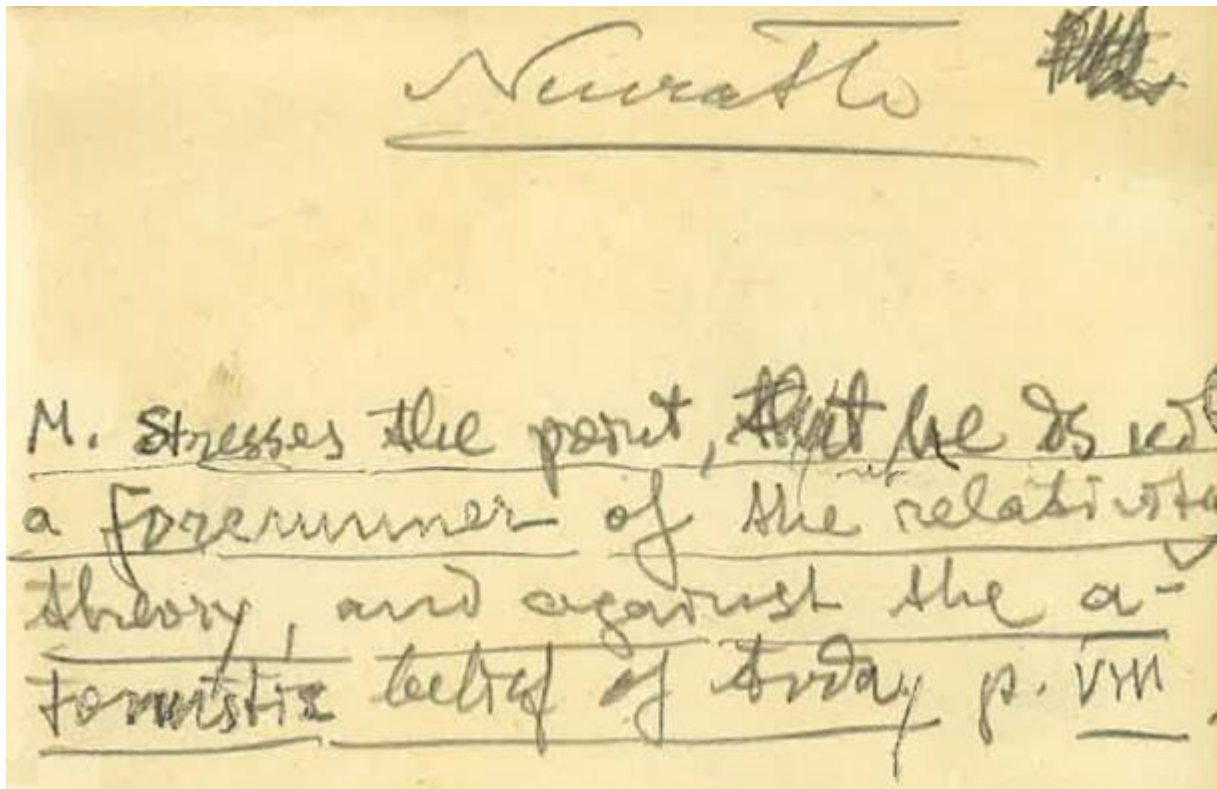 Neurath
M. stresses the point, that he is not
a forerunner of the relativity
theory, and against the a-
tomistic belief of today p. VIII.